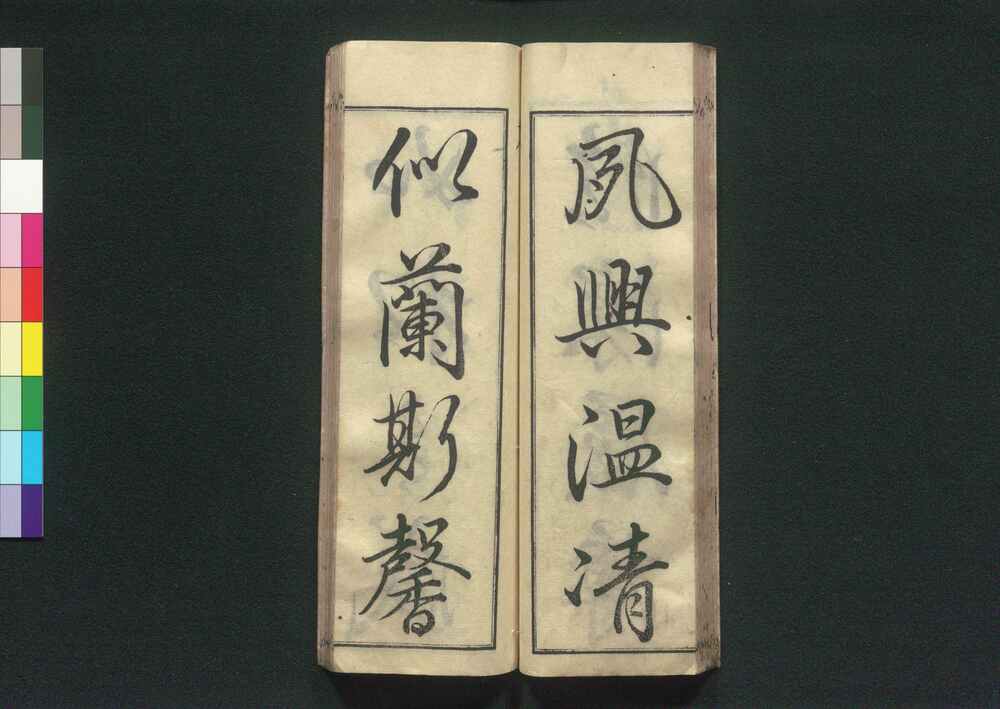 夙興温凊
似蘭斯馨